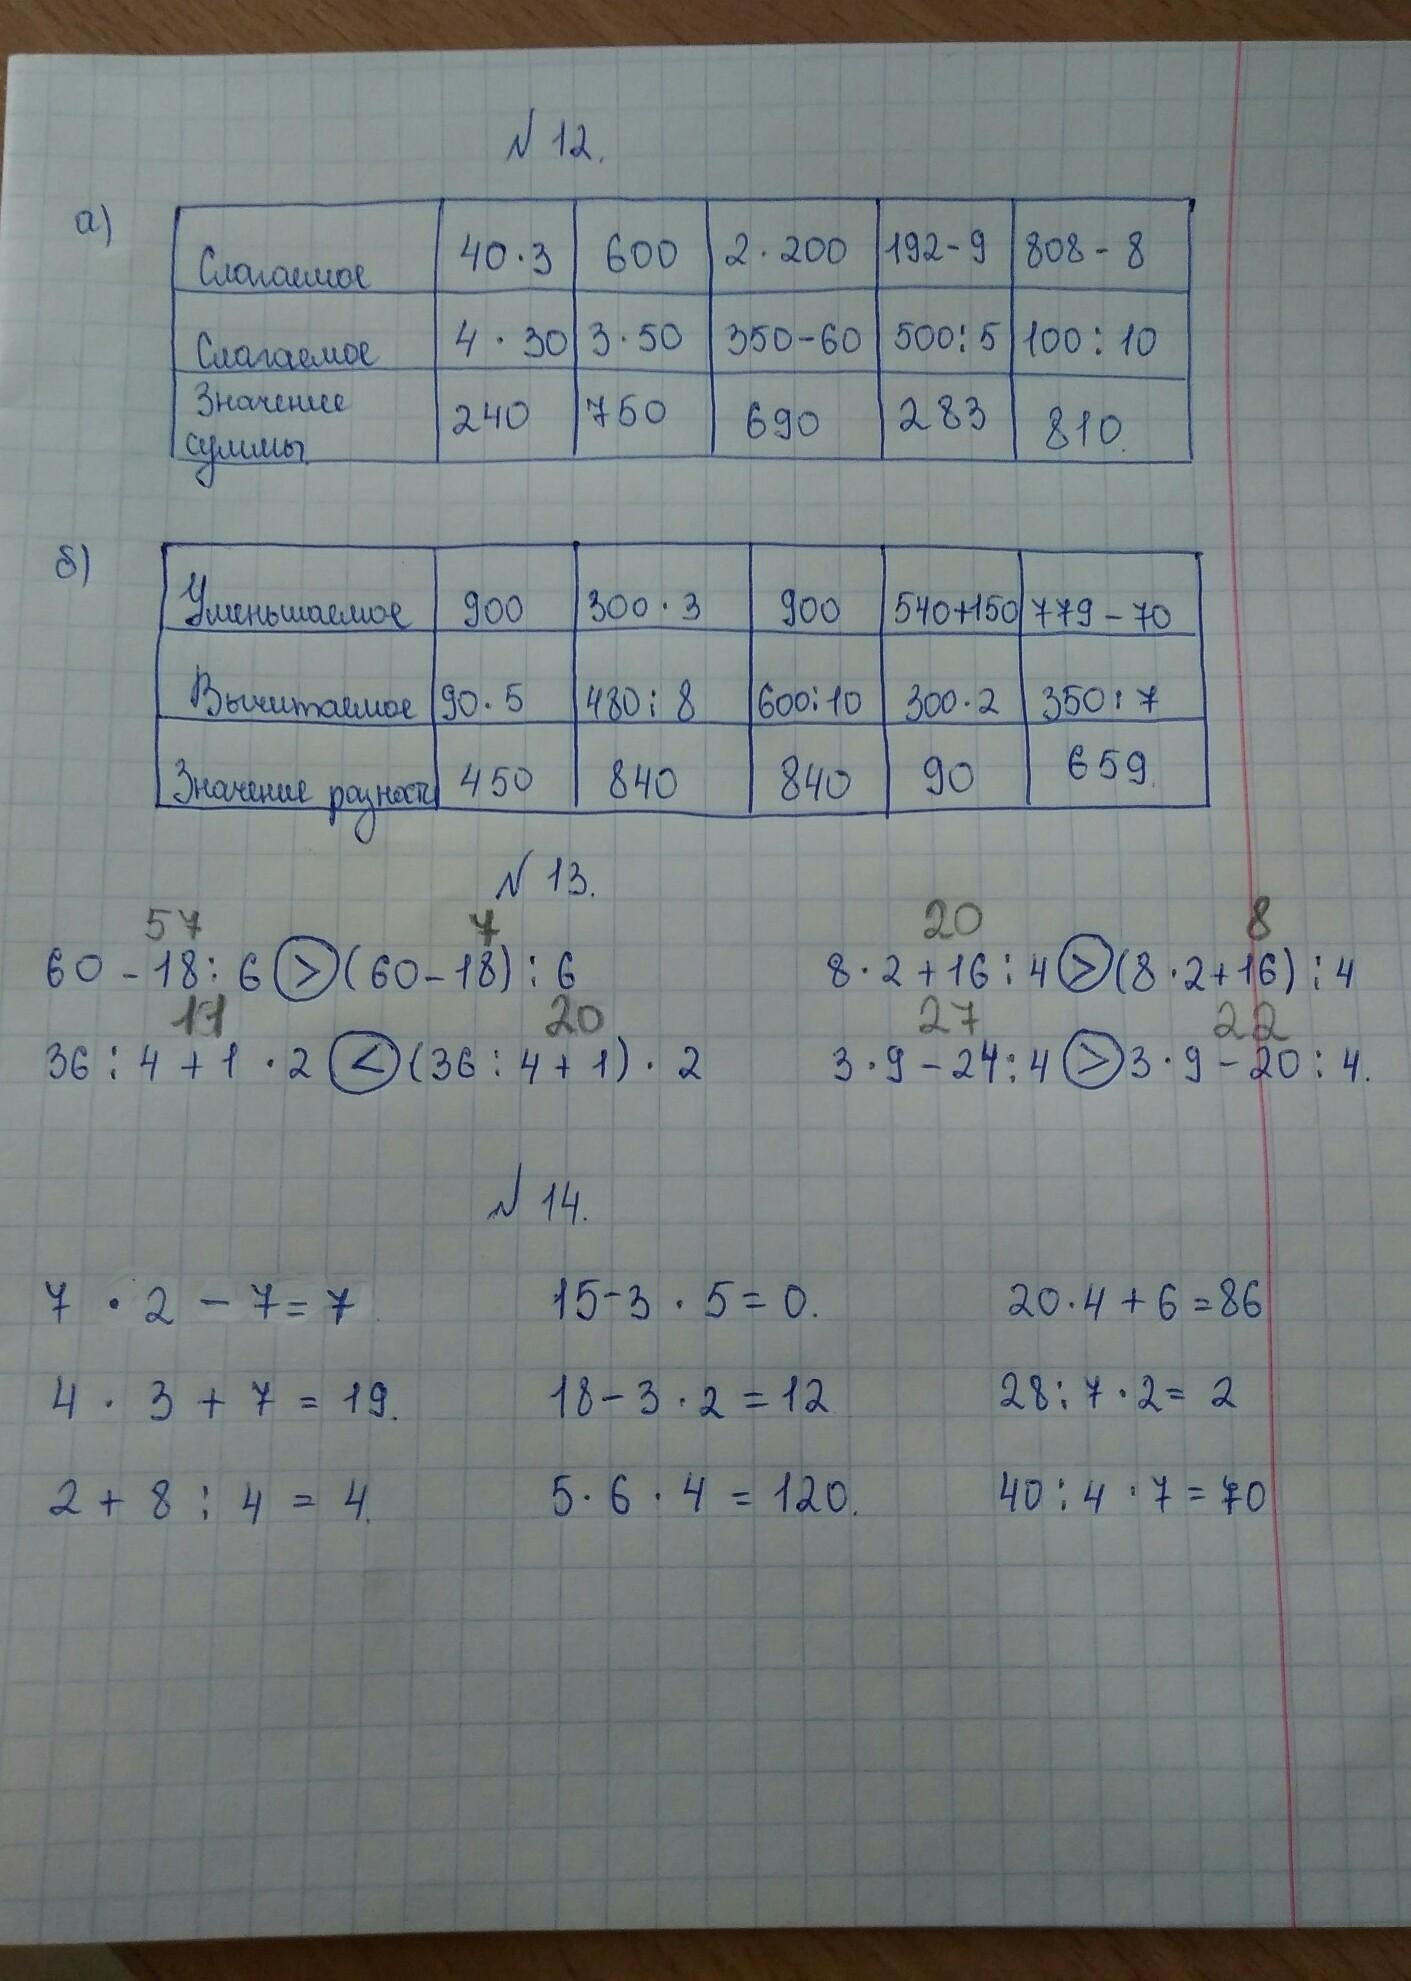 N 12.
а)
Слагаемое 40·3 600 2·200 192-9 808-8
Слагаемое 4·30 3·50 350-60 500:5 100:10
Значение суммы 240 750 690 283 810.
б)
Уменьшаемое 900 300·3 900 540+150 779-70
Вычитаемое 90·5 480:8 600:10 300·2 350:7
Значение разности 450 840 840 90 659.
N 13.
57 7 20 8
60-18:6 > (60-18):6 8·2+16:4 > (8·2+16):4
11 20 27 22
36:4+1·2 < (36:4+1)·2 3·9-24:4 > 3·9-20:4.
N 14.
7·2-7=7 15-3·5=0. 20·4+6=86
4·3+7=19. 18-3·2=12 28:7·2=2
2+8:4=4. 5·6·4=120. 40:4·7=70